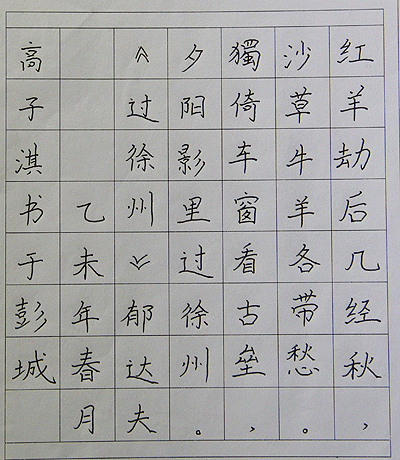 红羊劫后几经秋，
沙草牛羊各带愁。
獨倚车窗看古垒，
夕阳影里过徐州。
《过徐州》郁达夫
乙未年春月
高子淇书于彭城